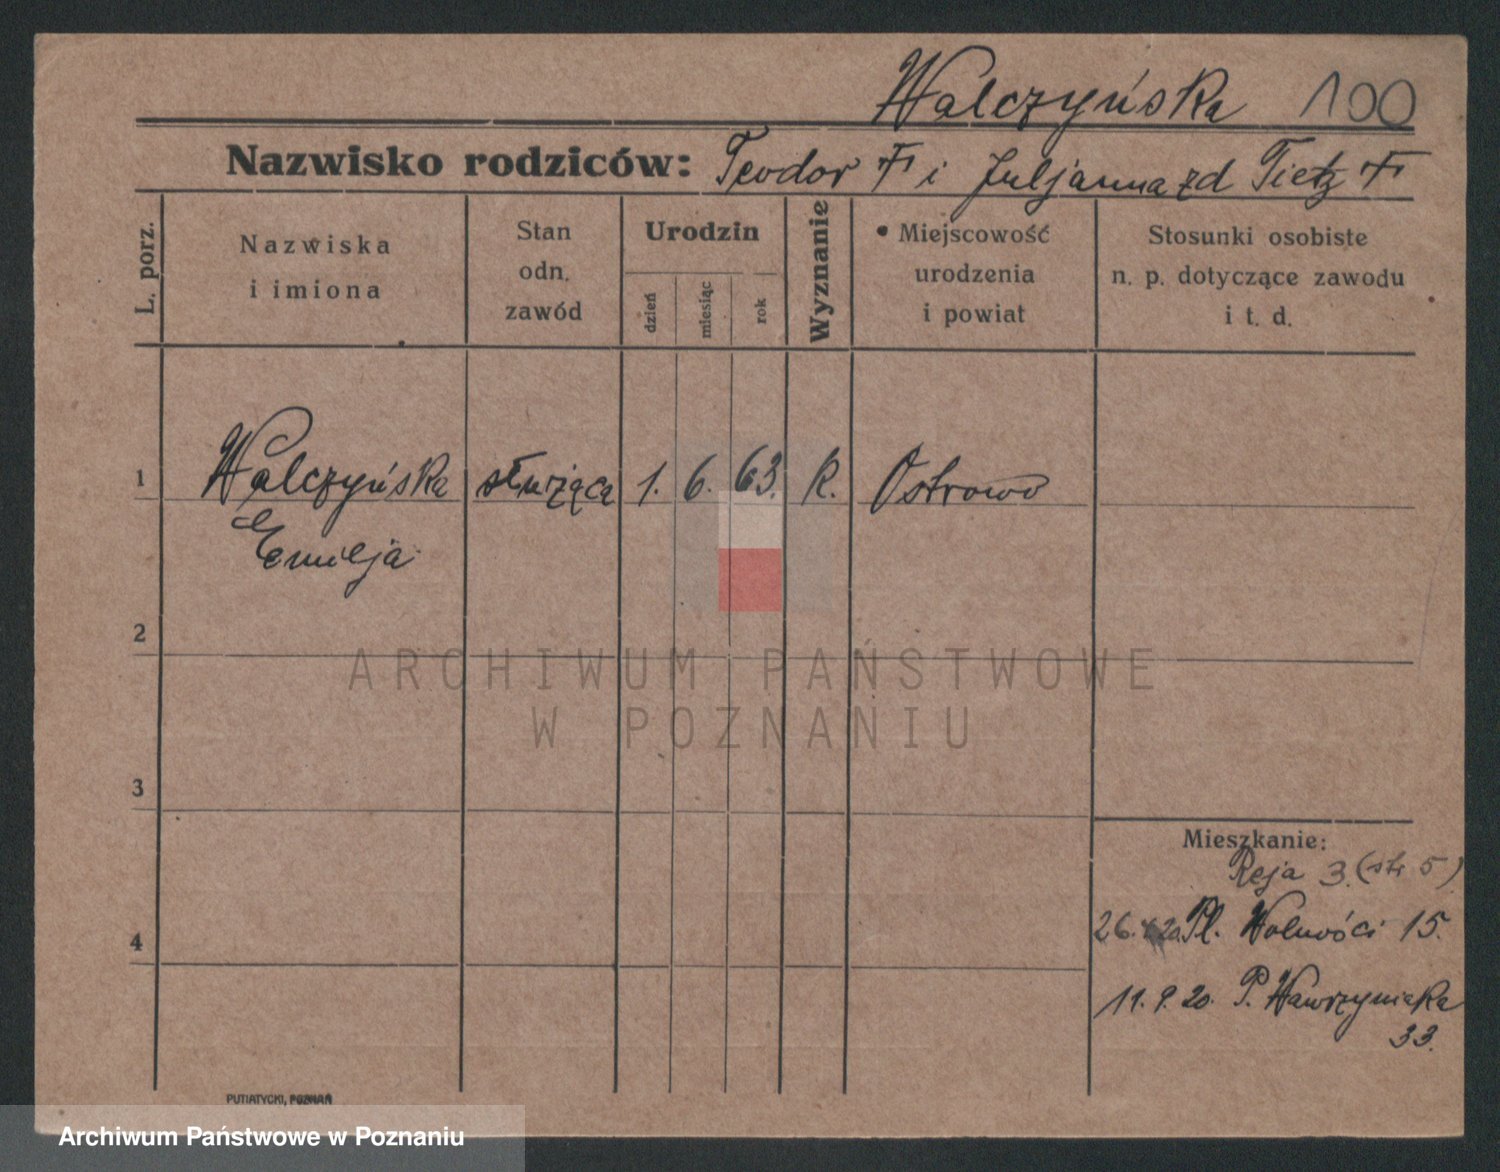 Walczyńska 100
Nazwisko rodziców: Teodor i Juljanna zd Tietz
L. porz.
Nazwiska
i imiona
Stan
odn.
zawód
Urodzin
dzień
miesiąc
rok
Wyznanie
Miejscowość
urodzenia
i powiat
Stosunki osobiste
n. p. dotyczące zawodu
i t. d.
1 Walczyńska służąca 1. 6. 63. k. Ostrowo
Emilja
2
3
4
ARCHIWUM PAŃSTWOWE
W POZNANIU
Mieszkanie:
Reja 3. (str 5)
26. 20. Pl. Wolności 15.
11. 9. 20. P. Wawrzyniaka
33.
PUTIATYCKI, POZNAŃ
Archiwum Państwowe w Poznaniu